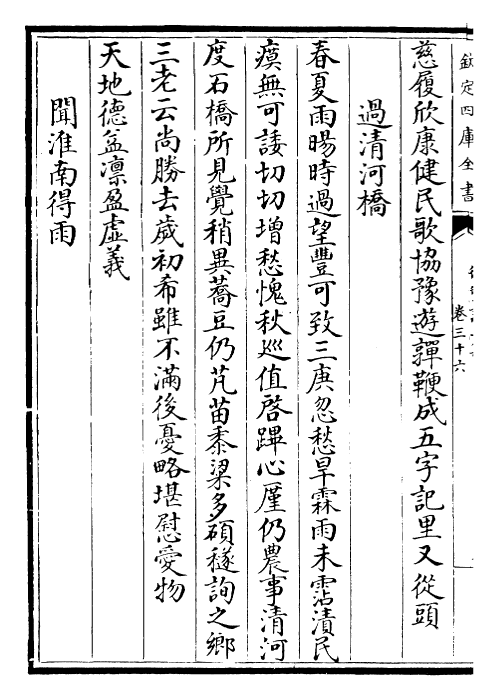 欽定四庫全書
卷三十六
慈履欣康健民歌協豫遊亸鞭成五字記里又從頭
過清河橋
春夏雨暘時過望豐可致三庚忽愁旱霖雨未霑漬民
瘼無可諉切切增愁愧秋廵值啓蹕心厪仍農事清河
度石橋所見覺稍異蕎豆仍芃苗黍粱多碩穟詢之鄉
三老云尚勝去歲初希雖不滿後憂略堪慰愛物
天地德益凛盈虛義
聞淮南得雨